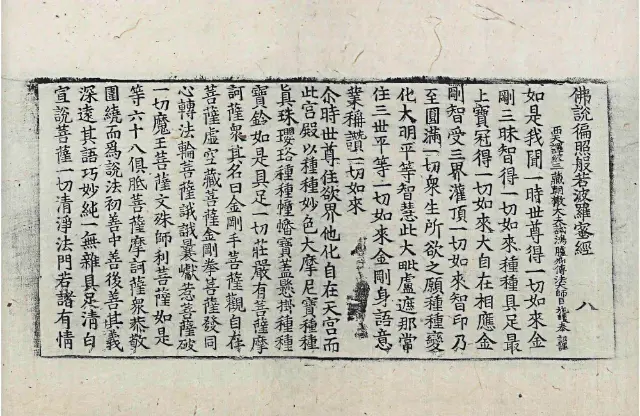 佛說徧照般若波羅蜜經
八
西天譯經三藏朝散大夫試鴻臚傳法大師臣施護奉 詔譯
如是我聞一時世尊得一切如來金
剛三昧智得一切如來種種具足最
上寶冠得一切如來大自在相應金
剛智受三界灌頂一切如來智印乃
至圓滿一切衆生所欲之願種種變
化大明平等智慧此大毗盧遮那常
住三世平等一切如來金剛身語意
業稱讚一切如來
尒時世尊住欲界他化自在天宮而
此宮殿以種種妙色大摩尼寶種種
眞珠瓔珞種種幢幡寶蓋懸掛種種
寶鈴如是具足一切莊嚴有菩薩摩
訶薩衆其名曰金剛手菩薩觀自在
菩薩虛空藏菩薩金剛拳菩薩發同
心轉法輪菩薩誐誐曩巘惹菩薩破
一切魔王菩薩文殊師利菩薩如是
等六十八俱胝菩薩摩訶薩衆恭敬
圍繞而爲說法初善中善後善其義
深遠其語巧妙純一無雜具足清白
宣說菩薩一切清淨法門若諸有情